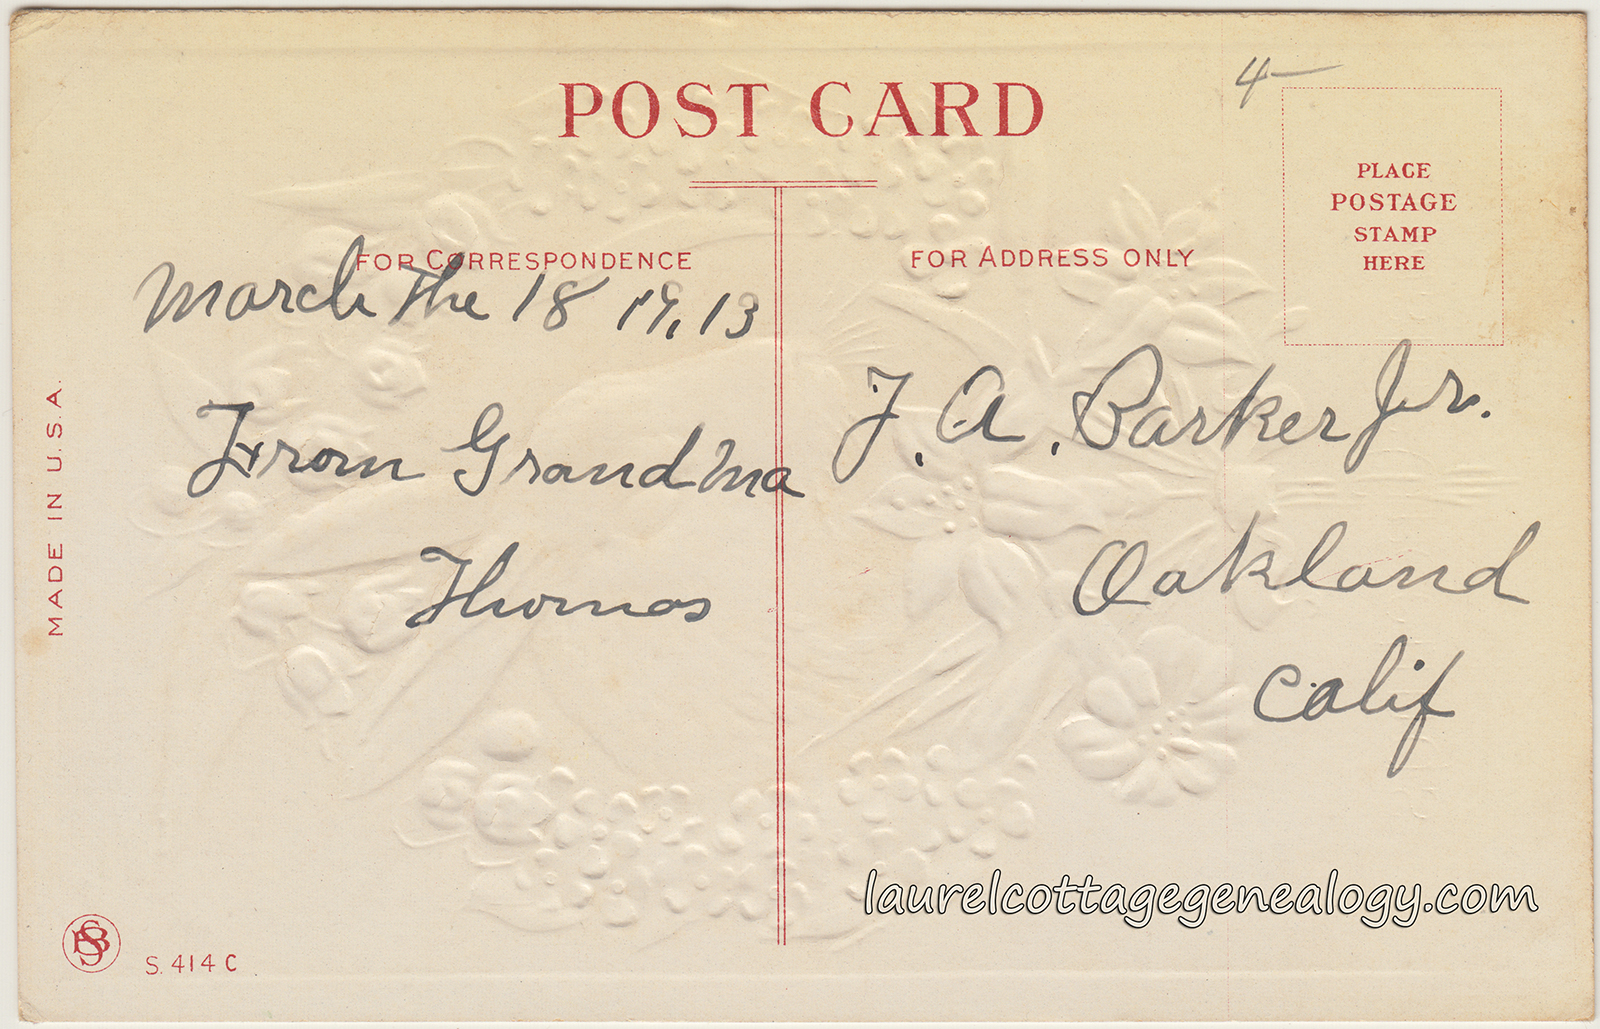 POST CARD
4-
PLACE
POSTAGE
STAMP
HERE
FOR CORRESPONDENCE
FOR ADDRESS ONLY
March The 18 19,13
From Grandma
Thomas
F. A. Barker Jr.
Oakland
Calif
MADE IN U.S.A.
SB
S. 414 C
laurelcottagegenealogy.com